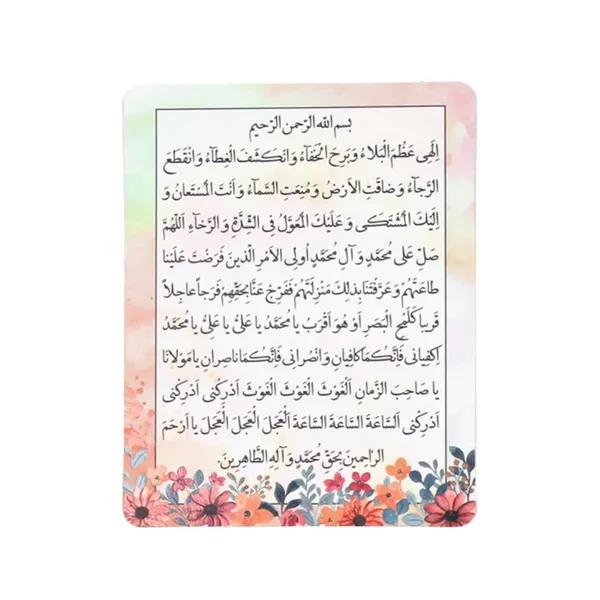 بسم الله الرّحمن الرّحیم
اِلٰهی عَظُمَ الْبَلاءُ وَ بَرِحَ الْخَفاءُ وَ انْکَشَفَ الْغِطاءُ وَ انْقَطَعَ
الرَّجاءُ وَ ضاقَتِ الْاَرْضُ وَ مُنِعَتِ السَّماءُ وَ اَنْتَ الْمُسْتَعانُ وَ
اِلَیْکَ الْمُشْتَکی وَ عَلَیْکَ الْمُعَوَّلُ فِی الشِّدَّةِ وَ الرَّخاءِ اَللّهُمَّ
صَلِّ عَلی مُحَمَّدٍ وَ آلِ مُحَمَّدٍ اُولِی الْاَمْرِ الَّذینَ فَرَضْتَ عَلَیْنا
طاعَتَهُمْ وَ عَرَّفْتَنا بِذلِکَ مَنْزِلَتَهُمْ فَفَرِّجْ عَنّا بِحَقِّهِمْ فَرَجاً عاجِلاً
قَریباً کَلَمْحِ الْبَصَرِ اَوْ هُوَ اَقْرَبُ یا مُحَمَّدُ یا عَلِیُّ یا عَلِیُّ یا مُحَمَّدُ
اِکْفِیانی فَاِنَّکُما کافِیانِ وَ انْصُرانی فَاِنَّکُما ناصِرانِ یا مَوْلانا
یا صاحِبَ الزَّمانِ اَلْغَوْثَ الْغَوْثَ الْغَوْثَ اَدْرِکْنی اَدْرِکْنی
اَدْرِکْنی اَلسّاعَةَ السّاعَةَ السّاعَةَ اَلْعَجَلَ الْعَجَلَ الْعَجَلَ یا اَرْحَمَ
الرّاحِمینَ بِحَقِّ مُحَمَّدٍ وَ آلِهِ الطّاهِرینَ.